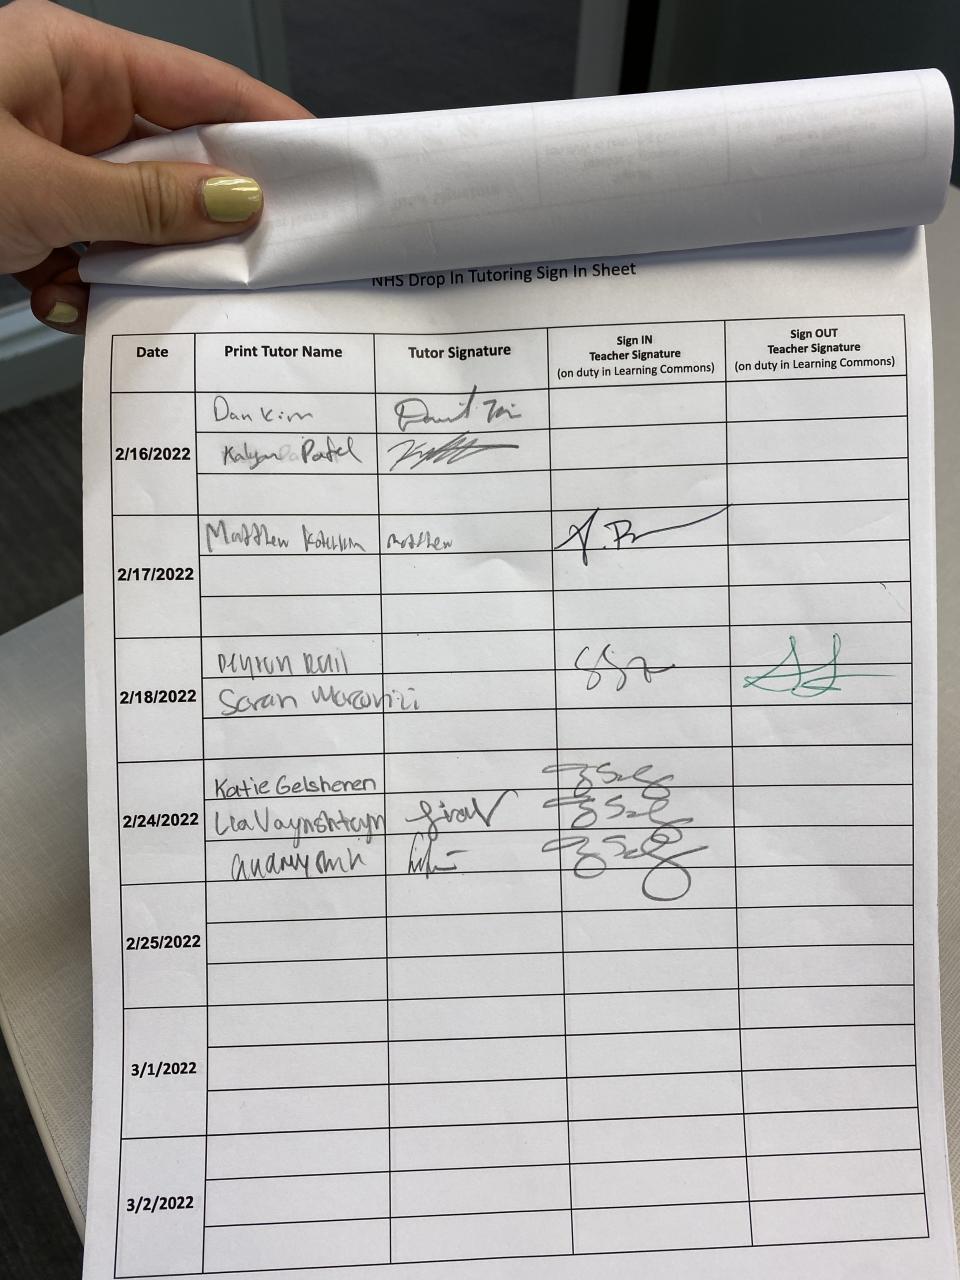 NHS Drop In Tutoring Sign In Sheet
Date
Print Tutor Name
Tutor Signature
Sign IN
Teacher Signature
(on duty in Learning Commons)
Sign OUT
Teacher Signature
(on duty in Learning Commons)
2/16/2022
Dan Kim
Kalyan Patel
2/17/2022
Matthew
Matthew
2/18/2022
Saran
2/24/2022
Katie Gelsheren
Lia Vaynshteyn
2/25/2022
3/1/2022
3/2/2022